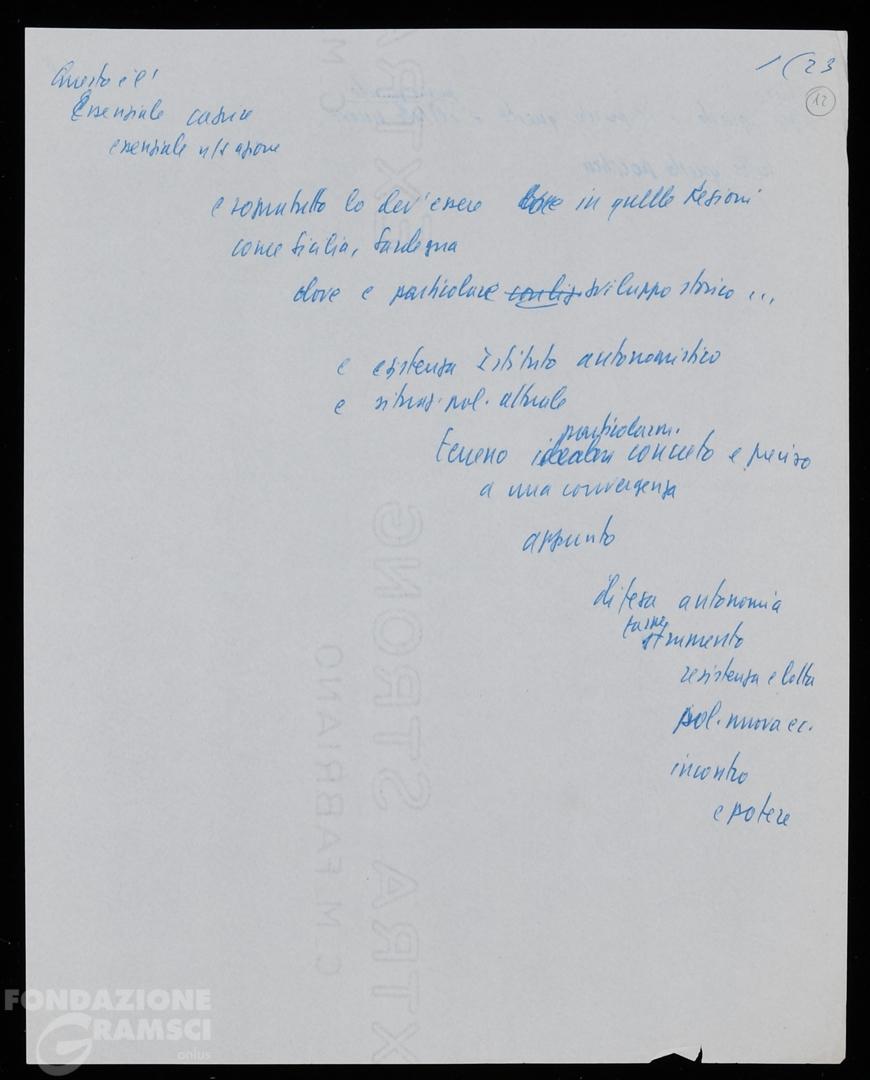 1(23
12
Questo è l'
Essenziale capire
essenziale n/s azione
e soprattutto lo dev'essere in quelle Regioni
come Sicilia, Sardegna
dove e particolare sviluppo storico ...
e esistenza Istituto autonomistico
e situaz. pol. attuale
particolarm.
Terreno concreto e preciso
a una convergenza
appunto
difesa autonomia
come
strumento
resistenza e lotta
pol. nuova ec.
incontro
e potere
EXTRA STRONG
G.M. FABRIANO
FONDAZIONE
GRAMSCI
onlus